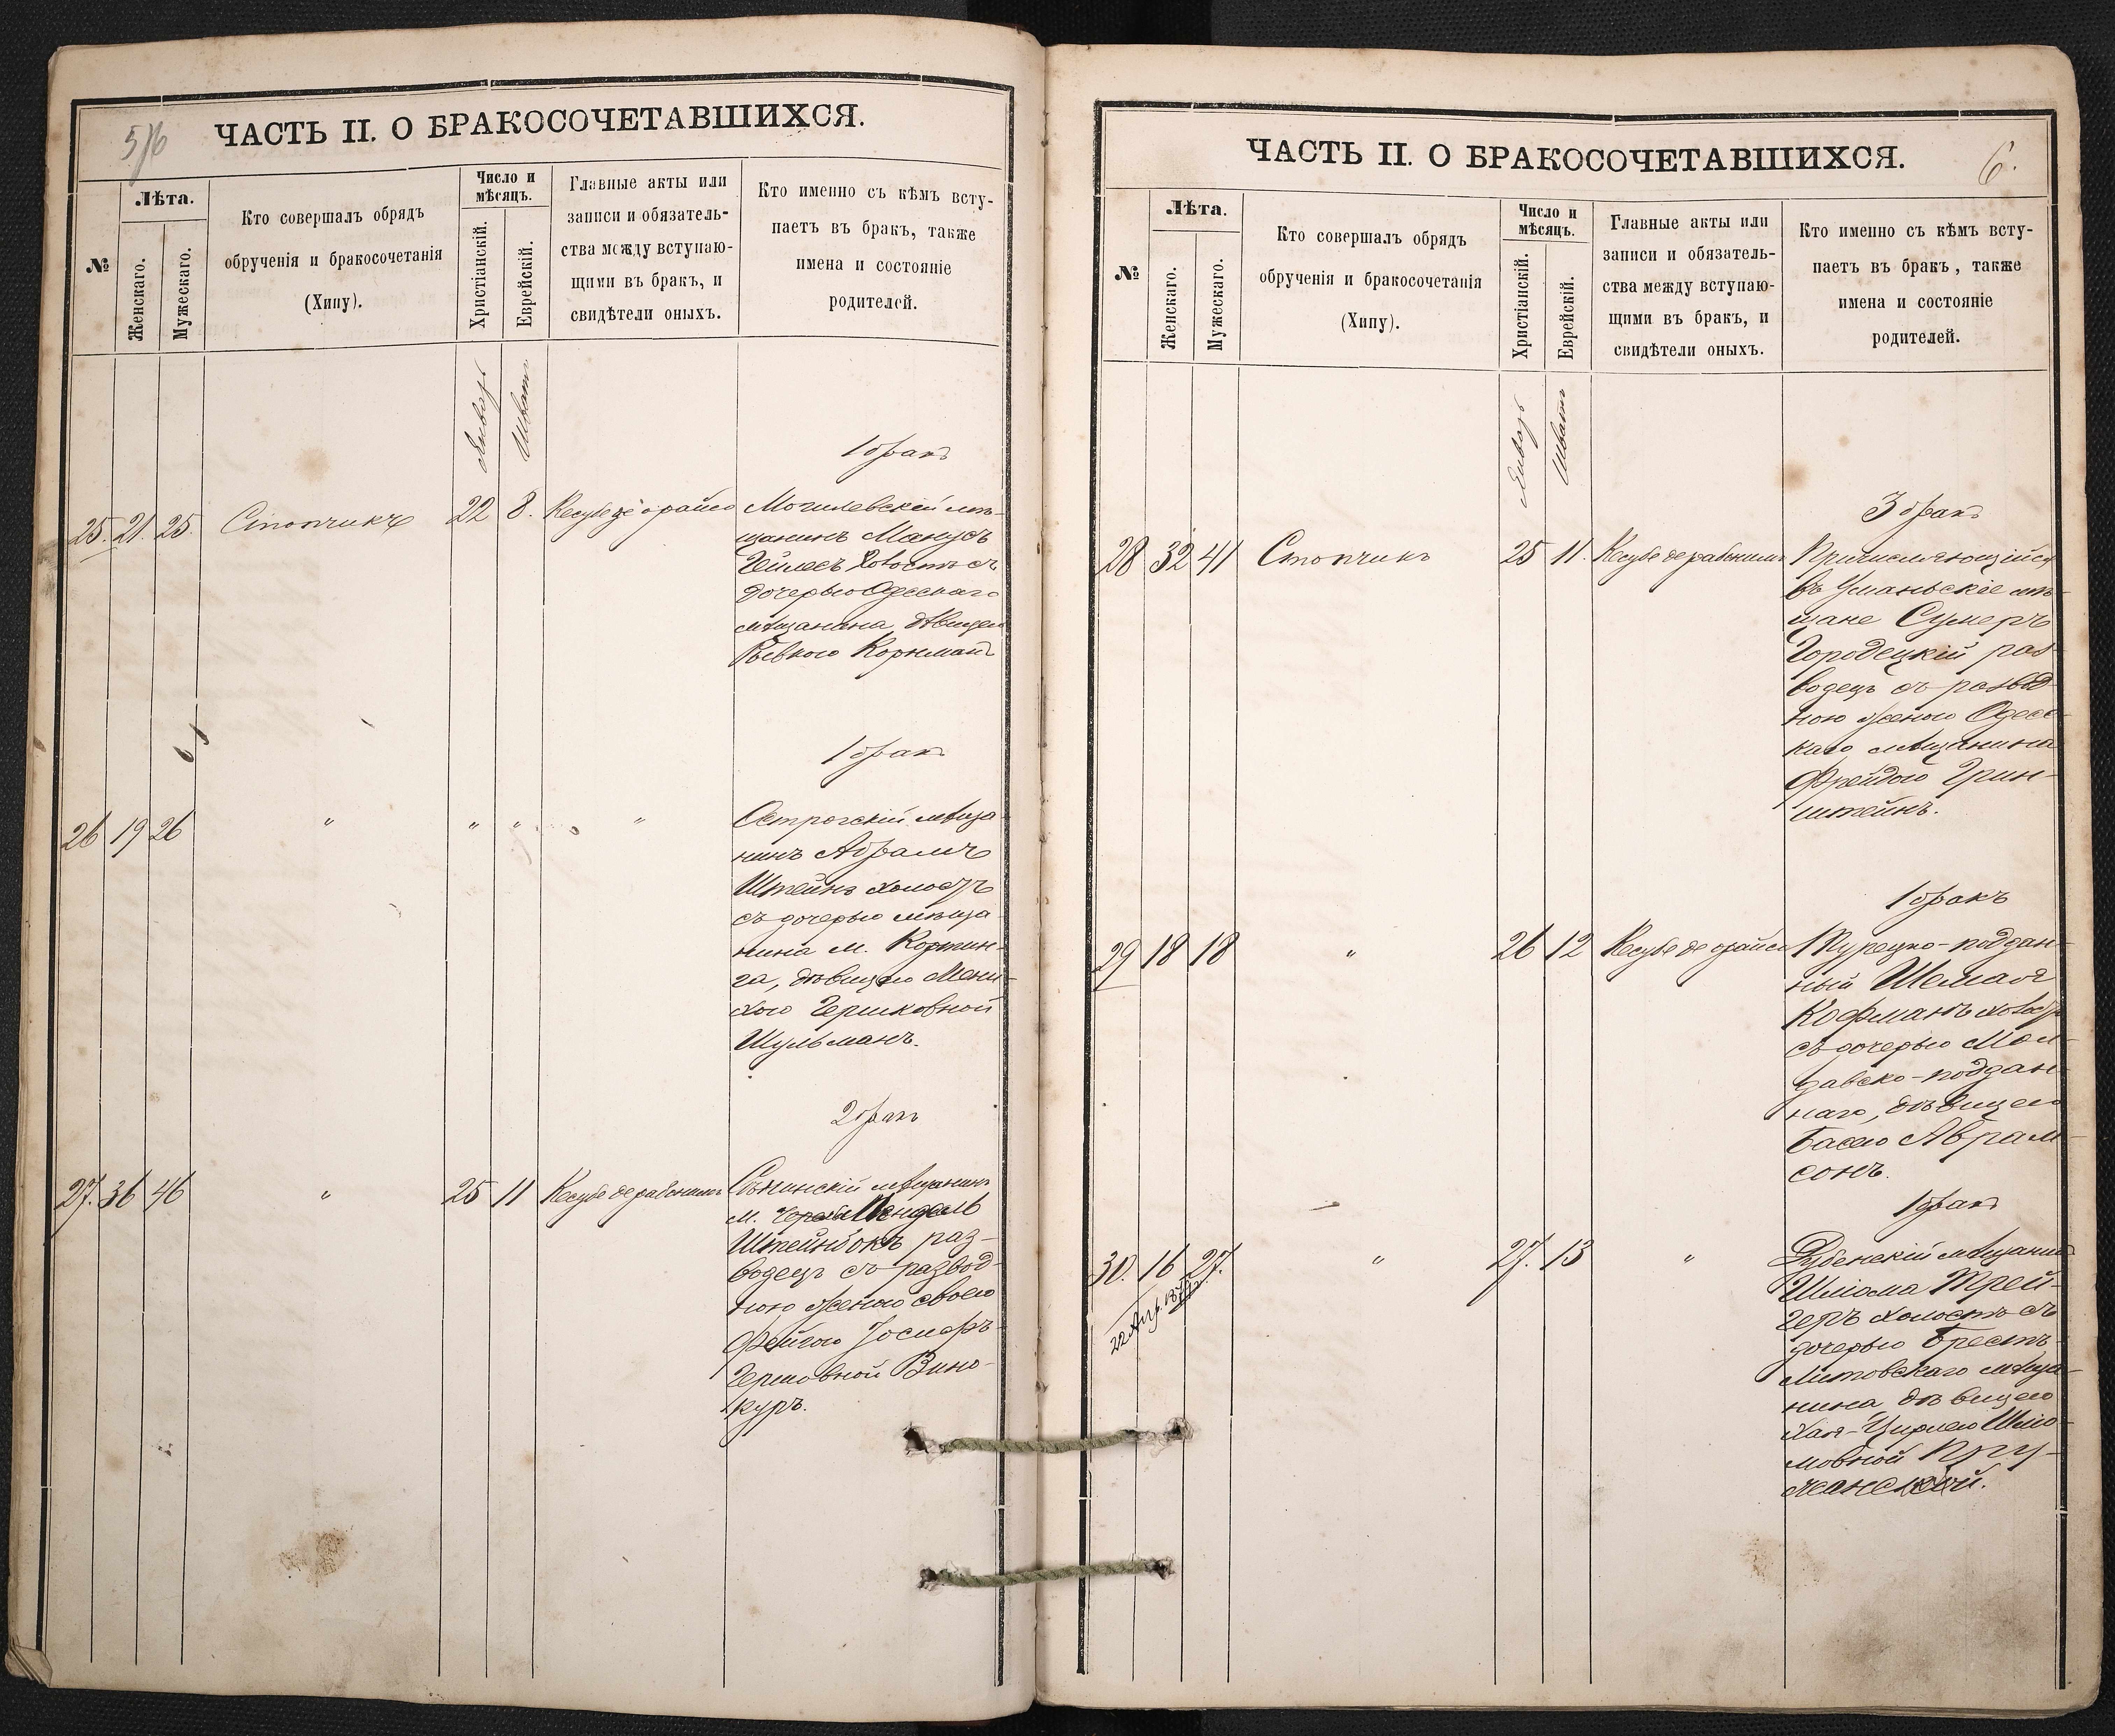 5/6
ЧАСТЬ II. О БРАКОСОЧЕТАВШИХСЯ.
№
Лѣта.
Женскаго.
Мужескаго.
Кто совершалъ обрядъ
обрученія и бракосочетанія
(Хипу).
Число и
мѣсяцъ.
Христіанскій.
Еврейскій.
Главные акты или
записи и обязатель-
ства между вступаю-
щими въ бракъ, и
свидѣтели оныхъ.
Кто именно съ кѣмъ всту-
паетъ въ бракъ, также
имена и состояніе
родителей.
Январь
Шватъ
1 бракъ
25. 21. 25. Стопчикъ 22 8. Кесубе де орайсо Могилевскій мѣ-
щанинъ Манусъ
Гейлесъ Холостъ съ
дочерью Одесскаго
мѣщанина дѣвицею
Ривкою Корнманъ
1 бракъ
26 19 26 " " " " Острогскій мѣща-
нинъ Абрамъ
Штейнъ холостъ
съ дочерью мѣща-
нина м. Кортин-
га, дѣвицею Мени-
хою Гершковной
Шульманъ.
2 бракъ
27. 36 46 " 25 11 Кесубе дерабонимъ мѣщанинъ
м. Мендель
Штейнбокъ раз-
водецъ съ развод-
ною женою своею
Фейгою Іосифъ-
Гершовной Вино-
куръ.
6.
ЧАСТЬ II. О БРАКОСОЧЕТАВШИХСЯ.
№
Лѣта.
Женскаго.
Мужескаго.
Кто совершалъ обрядъ
обрученія и бракосочетанія
(Хипу).
Число и
мѣсяцъ.
Христіанскій.
Еврейскій.
Главные акты или
записи и обязатель-
ства между вступаю-
щими въ бракъ, и
свидѣтели оныхъ.
Кто именно съ кѣмъ всту-
паетъ въ бракъ, также
имена и состояніе
родителей.
Январь
Шватъ
3 бракъ
28 32 41 Стопчикъ 25 11. Кесубе дерабонимъ Причисляющійся
въ Уманьскіе мѣ-
щане Сумеръ
Городецкій раз-
водецъ съ развод-
ною женою Одесс-
каго мѣщанина
Фрейдою Грин-
штейнъ.
1 бракъ
29 18 18 " 26 12 Кесубе де орайсо Турецко-поддан-
ный Шемая
Кофманъ холостъ
съ дочерью Мол-
давско-поддан-
наго, дѣвицею
Басею Абрам-
сонъ.
1 бракъ
30. 16 27. " 27. 13 " Дубенскій мѣщанинъ
Шліома Трей-
геръ холостъ съ
дочерью Брестъ-
Литовскаго мѣща-
нина дѣвицею
Хая-Цирлею Шліо-
мовной Пру-
жанской.